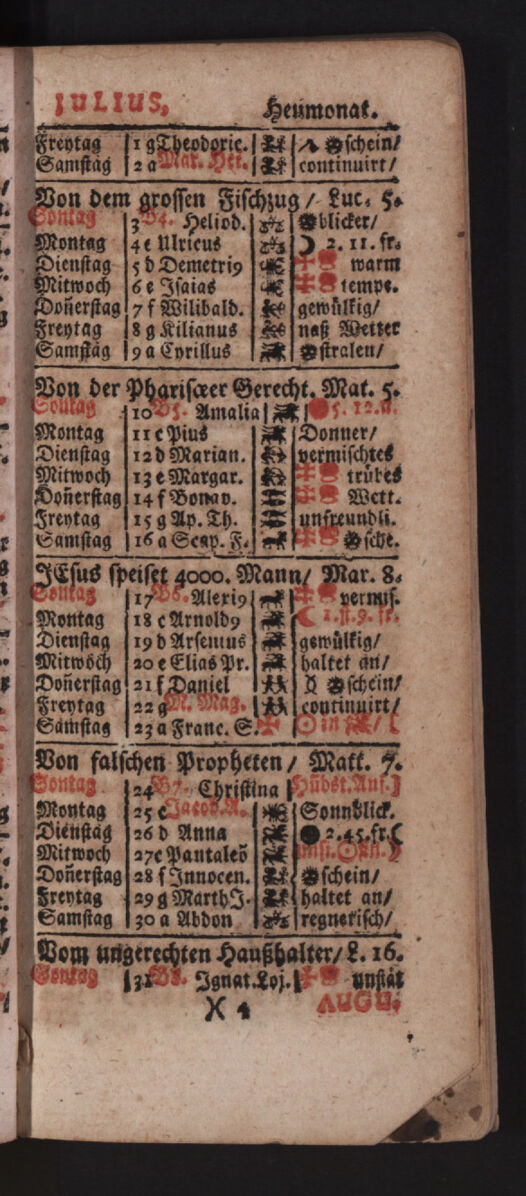 JULIUS, Heumonat.
Freytag 1 g Theodoric. schein/
Samstag 2 a Mar. Hei. continuirt/
Von dem grossen Fischzug / Luc. 5.
Sontag 3 B4. Heliod. blicker/
Montag 4 c Ulricus 2. 11. fr.
Dienstag 5 d Demetri9 warm
Mitwoch 6 e Isaias tempe.
Doñerstag 7 f Wilibald. gewülkig/
Freytag 8 g Kilianus naß Wetter
Samstäg 9 a Cyrillus stralen/
Von der Phariseer Gerecht. Mat. 5.
Sontag 10 B5. Amalia 5. 12. n.
Montag 11 c Pius Donner/
Dienstag 12 d Marian. vermischtes
Mitwoch 13 e Margar. trübes
Doñerstag 14 f Bonav. Wett.
Freytag 15 g Ap. Th. unfreundli.
Samstag 16 a Scap. F. sche.
JEsus speiset 4000. Mann/ Mar. 8.
Sontag 17 B6. Alexi9 vermis.
Montag 18 c Arnold9 1. 11. 9. fr.
Dienstag 19 d Arsenius gewülkig/
Mitwöch 20 e Elias Pr. haltet an/
Doñerstag 21 f Daniel ☿ schein/
Freytag 22 g M. Mag. continuirt/
Samstag 23 a Franc. S. ☉ in
Von falschen Propheten / Matt. 7.
Sontag 24 B7. Christina Hundst. Anf.
Montag 25 c Jacob. A. Sonnblick.
Dienstag 26 d Anna 2. 45. fr.
Mitwoch 27 e Pantaleō
Doñerstag 28 f Innocen. schein/
Freytag 29 g Marth J. haltet an/
Samstag 30 a Abdon regnerisch/
Vom ungerechten Haußhalter/ L. 16.
Sontag 31 B8. Ignat. Loj. unstät
X 4 AUGU.